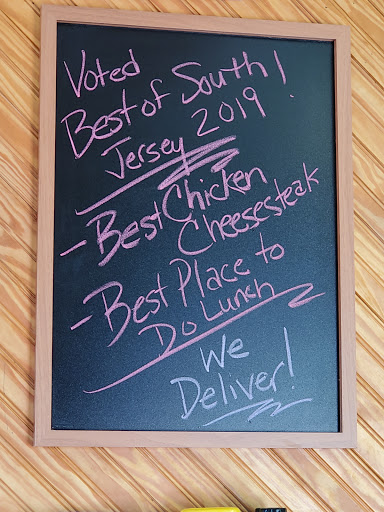 Voted
Best of South!
Jersey 2019
- Best Chicken
Cheesesteak
- Best Place to
Do Lunch
We
Deliver!